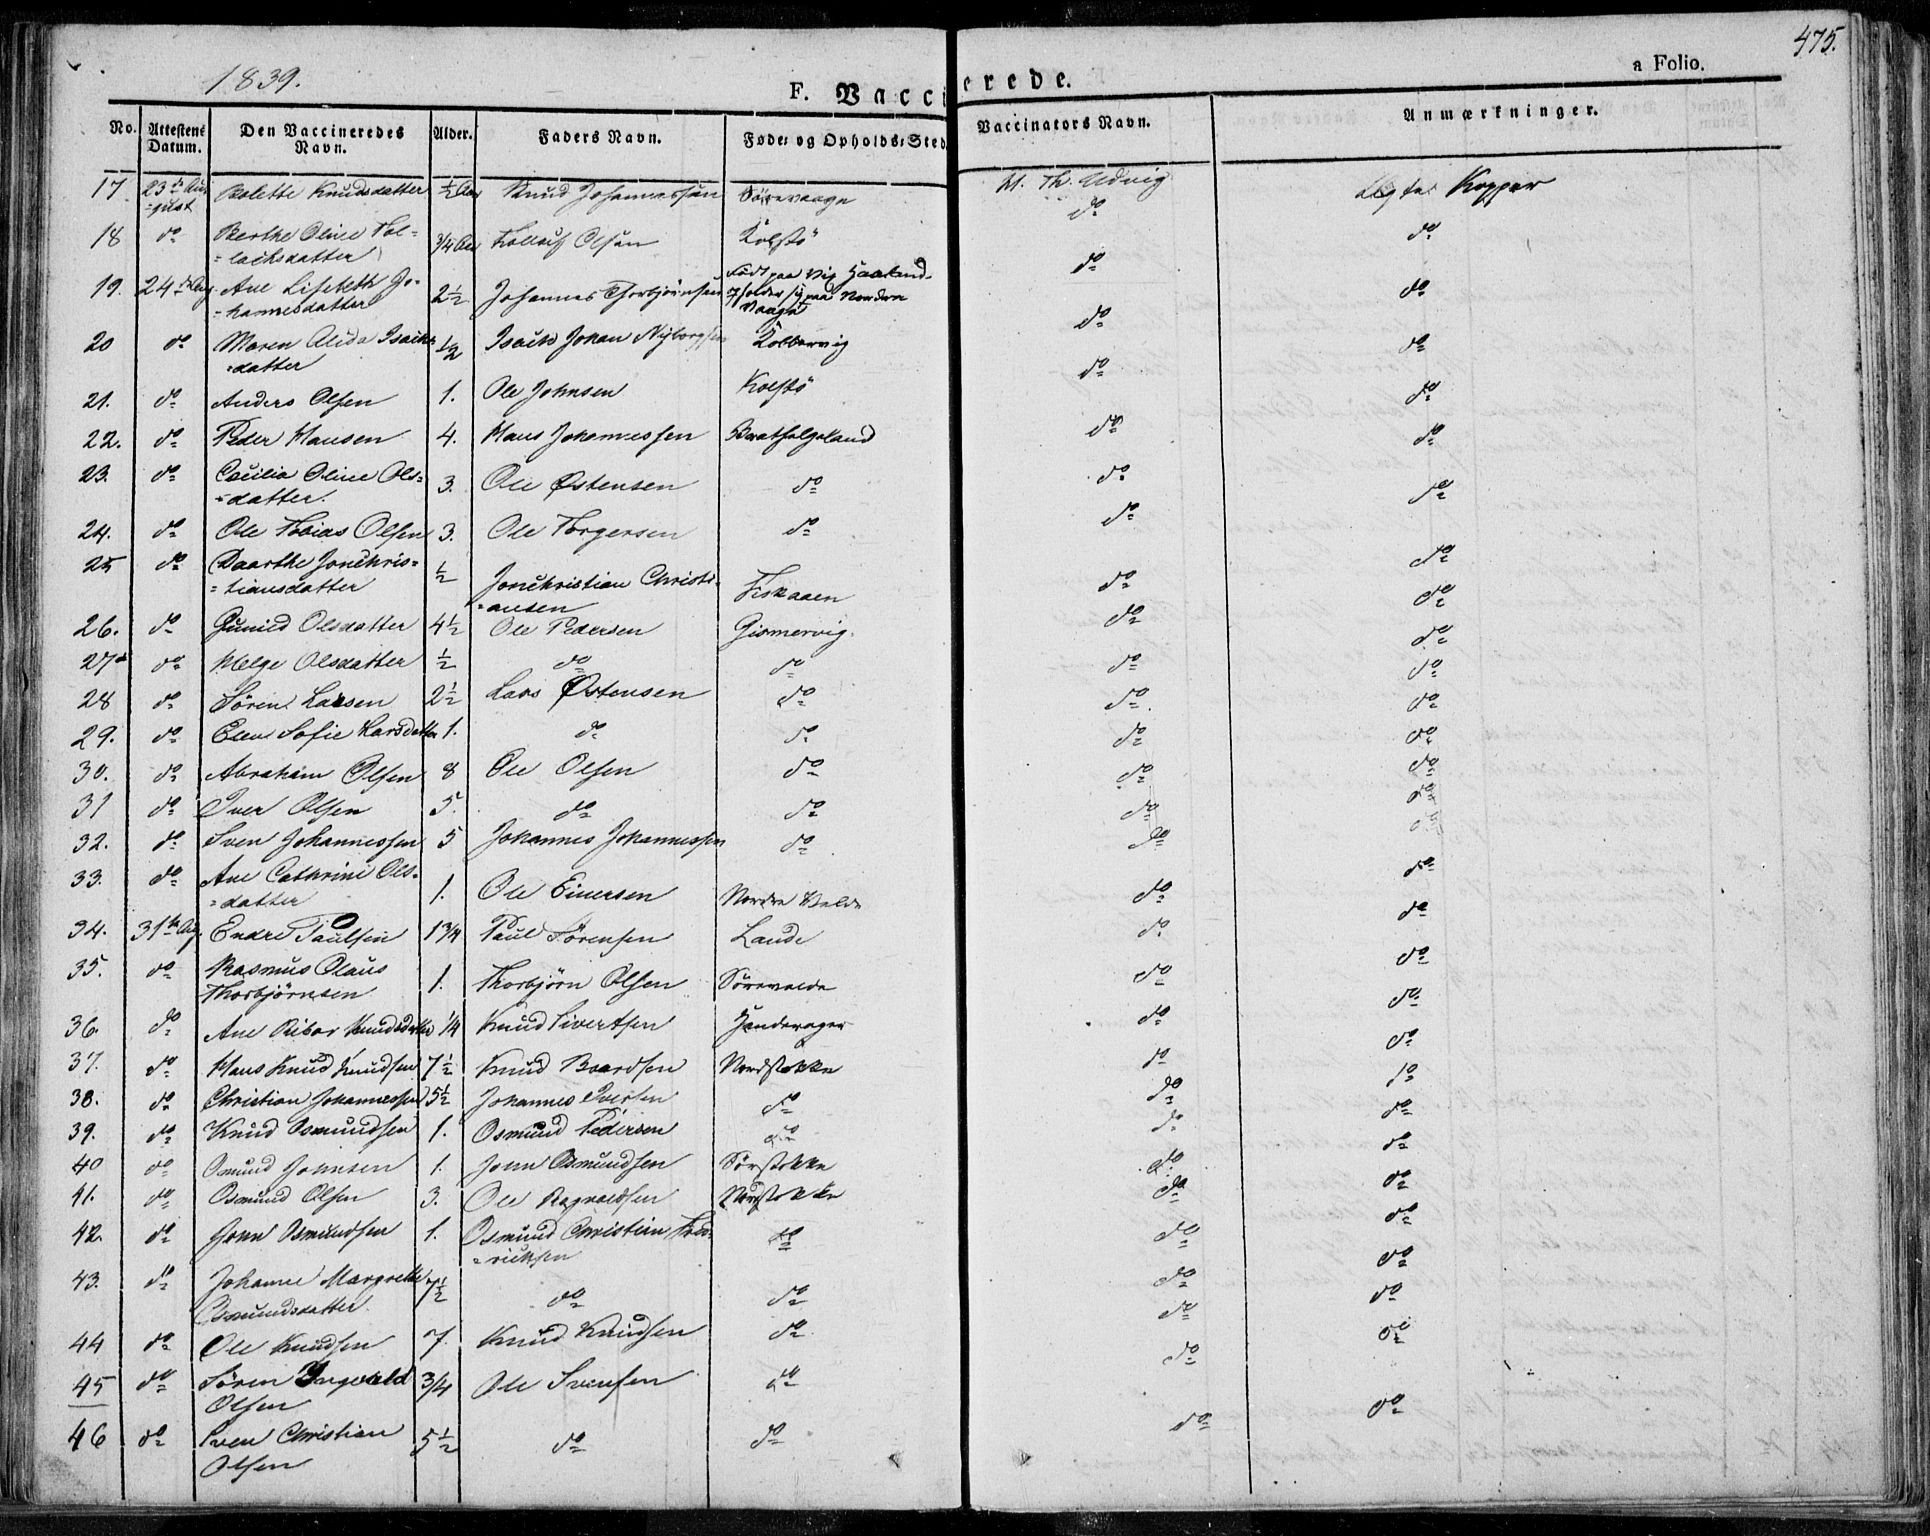 475.
1839.
F. Vaccinerede.
a Folio.
No. Attestens Datum. Den Vaccineredes Navn. Alder. Faders Navn. Føde- og Opholds-Sted Vaccinators Navn. Anmærkninger.
17. 23de Au=gust Bolette Knudsdatter ½ Aar Knud Johannessen Sörevaage M. Th. Udvig Ægte Kopper
18 do Berthe Oline Tol=
=laksdatter 3/4 Aar Tollaif Olsen Kolstö do do
19. 24de Aug. Ane Lisebeth Jo=
=hannesdatter 2½ Johannes Thorbjörnsen Födt paa Vig Haaland
Nordre Vaage do do
20 do Maren Alida Isaks
=datter ½ Isach Johan Nyborgsen Kolbervig do do
21. do Anders Olsen 1. Ole Johnsen Kolstö do do
22. do Peder Hansen 4. Hans Johannessen Brathelgeland do do
23. do Cecilia Oline Ols=
=datter. 3. Ole Østensen do do do
24. do Ole Tobias Olsen 3. Ole Torgersen do do do
25 do Daarthe Jonchris=
=tiansdatter ½ Jonchristian Christi=
=ansen Fiskaaen do do
26. do Gunild Olsdatter 4½ Ole Pedersen Gismervig. do do
27 do Helge Olsdatter ½ do do do do
28 do Sören Larsen 2½ Lars Østensen do do do
29. do Elen Sofie Larsdatter 1. do do do do
30. do Abraham Olsen 8 Ole Olsen do do do
31 do Iver Olsen 5. do do do do
32. do Sven Johannessen 5 Johannes Johannessen do do
33. do Ane Cathrine Ols=
=datter 1. Ole Einersen Nordre Velde do do
34. 31te Aug. Endre Paulsen 1 3/4 Paul Sörensen Lande do do
35. do Rasmus Olaus
Thorbjörnsen 1. Thorbjörn Olsen Sörevelde do do
36. do Ane Knudsdatter 1/4 Knud Sivertsen do do
37. do Hans Knud Knudsen 7½ Knud Baardsen Nordstokke do do
38. do Christian Johannessen 5½ Johannes Iversen do do do
39. do Knud Osmundsen 1. Osmund Pedersen do do do
40 do Osmund Johnsen 1. John Osmundsen Sörstokke do do
41. do Osmund Olsen 3. Ole Ragnvaldsen Nordstokke do do
42. do John Osmundsen 1. Osmund Christian Fred=
=ricksen do do do
43. do Johanne Margrethe
Osmundsdatter. 7½ do do do do
44 do Ole Knudsen 7. Knud Knudsen do do do
45 do Sören Ingvald
Olsen 3/4 Ole Svensen do do do
46 do Sven Christian
Olsen 5½ do do do do